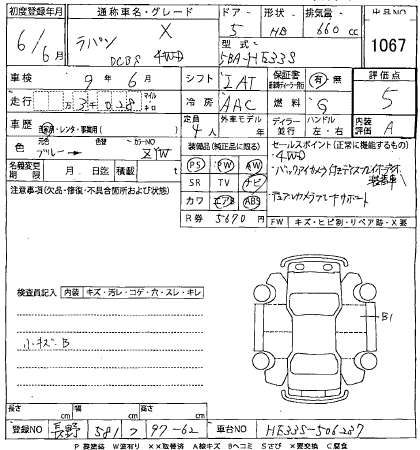 初度登録年月 通称車名・グレード ドア 形状 排気量 出品NO
6/6月 ラパン X 5 HB 660cc 1067
DCBS 4WD 型式
5BA-HE33S
車検 9年6月 シフト IAT 保証書 有・無 評価点
走行 万3千028 マイル キロ 冷房 AAC 燃料 G 5
車歴 自家用・レンタ・事業用( ) 定員 4人 外車モデル 年 ディーラー 並行 ハンドル 左・右 内装評価 A
色 元色 ブルー→ 色替 カラーNO ZYW 装備品(純正品に限る) セールスポイント(正常に機能するもの)
・4WD
名義変更期限 月 日迄 積載 t PS PW AW
SR TV ナビ
注意事項(欠品・修復・不具合箇所および状態) カワ エアB ABS ・デュアルカメラブレーキサポート
R券 5670円 FW キズ・ヒビ割・リペア跡・X要
検査員記入 内装 キズ・汚レ・コゲ・穴・スレ・キレ
小キズB
B1
長さ cm 幅 cm 高さ cm
登録NO 長野 581 フ 97-62 車台NO HE33S-506287
P 要塗装 W波有り ××取替済 A検キズ Bヘコミ Sさび ×要交換 C腐食